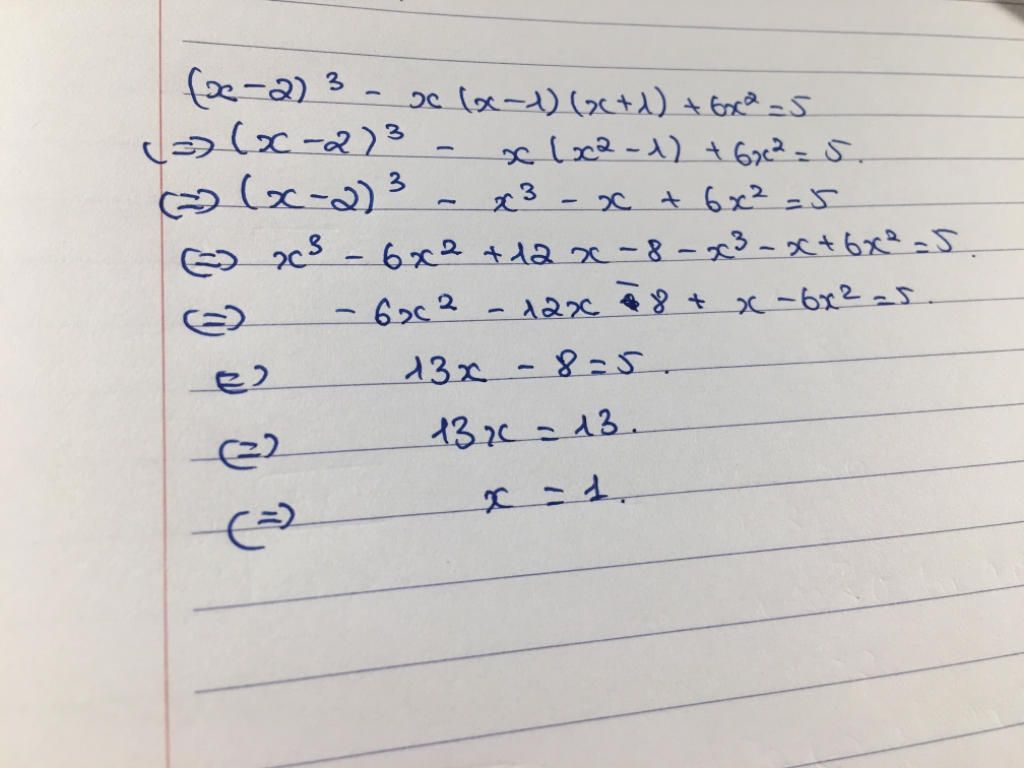 (x-2)³ - x(x-1)(x+1) + 6x² = 5
(=) (x-2)³ - x(x²-1) + 6x² = 5.
(=) (x-2)³ - x³ - x + 6x² = 5
(=) x³ - 6x² + 12x - 8 - x³ - x + 6x² = 5.
(=) - 6x² - 12x - 8 + x - 6x² = 5.
(=) 13x - 8 = 5.
(=) 13x = 13.
(=) x = 1.